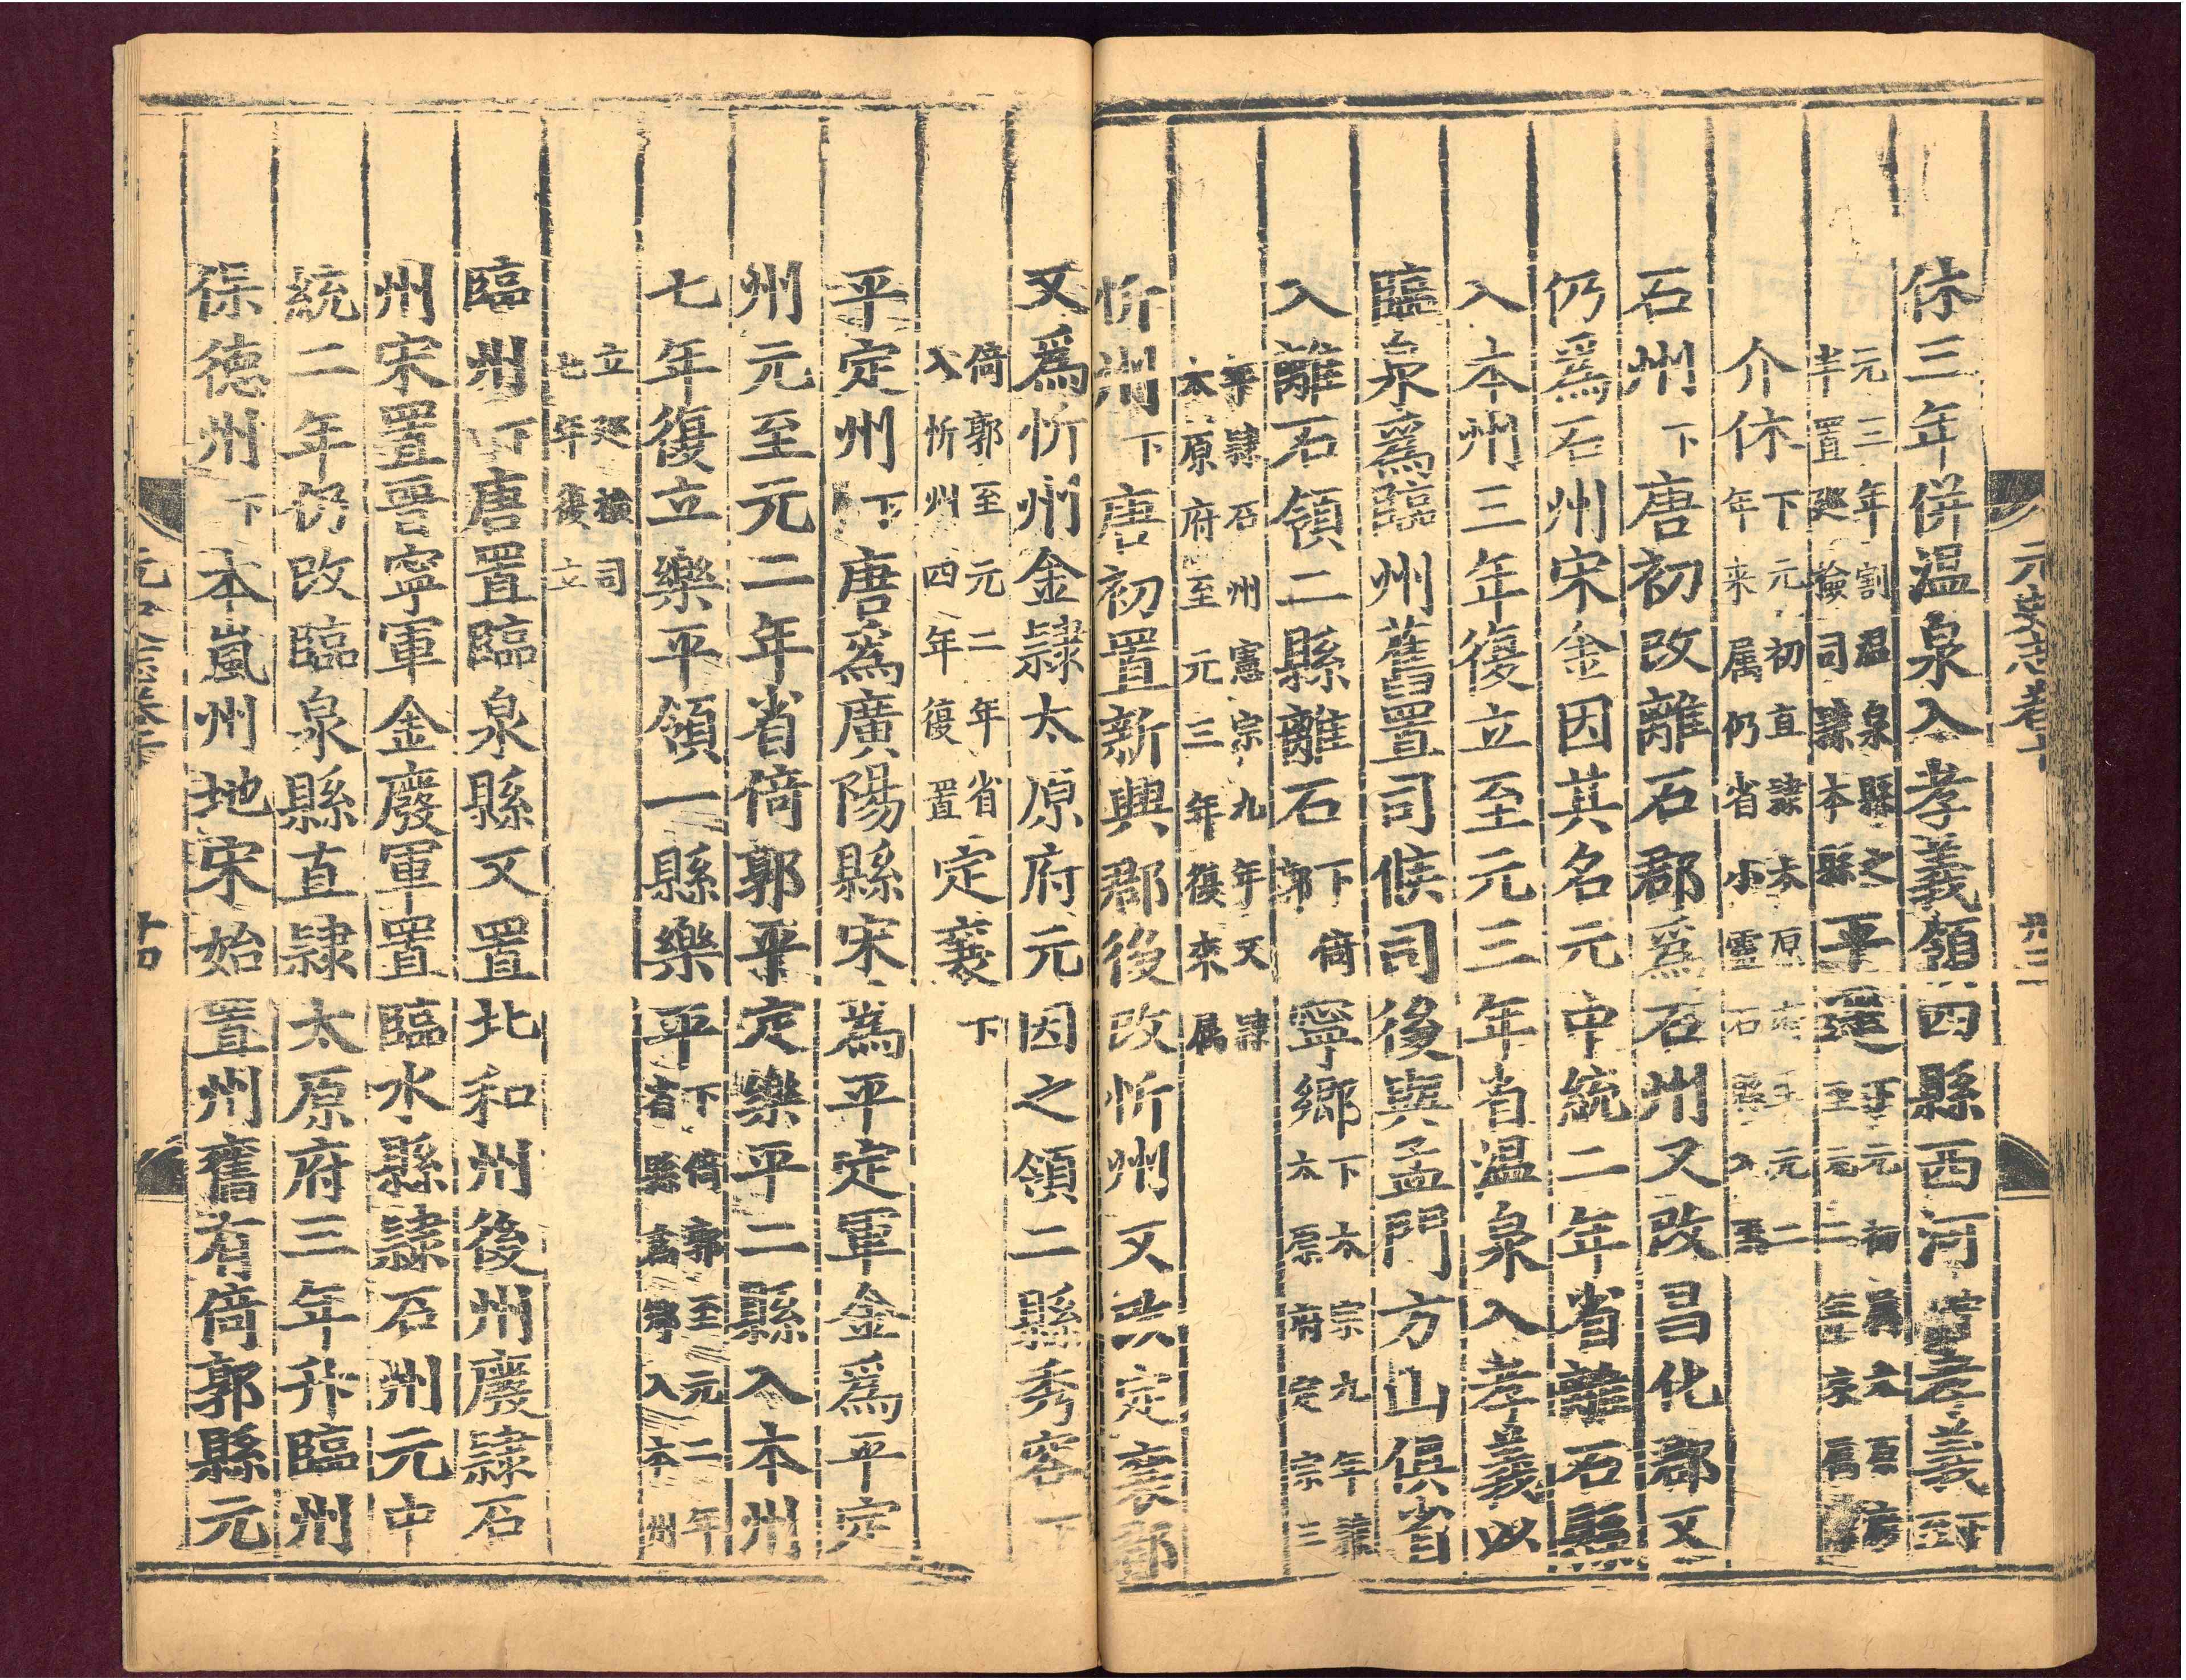 休三年併温泉入孝義領四縣西河孝義至
元三年割温泉縣之
半置廵檢司隷本縣平遥下元初属太原府
至元二年來属
介休下元初直隷太原府至元二
年来属仍省小靈石縣入焉
石州下唐初改離石郡爲石州又改昌化郡又
仍爲石州宋金因其名元中統二年省離石縣
入本州三年復立至元三年省温泉入孝義以
臨泉爲臨州舊置司候司後與孟門方山俱省
入離石領二縣離石下倚
郭寧鄉下太宗九年隷
太原府定宗三
年隷石州憲宗九年又隷
太原府至元三年復來属
忻州下唐初置新興郡後改忻州又洪定襄郡
又爲忻州金隷太原府元因之領二縣秀容下
倚郭至元二年省
入忻州四年復置定襄下
平定州下唐爲廣陽縣宋為平定軍金爲平定
州元至元二年省倚郭平定樂平二縣入本州
七年復立樂平領一縣樂平下倚郭至元二年
省縣為鄉入本州
立廵檢司
七年復立
臨州下唐置臨泉縣又置北和州後州廢隷石
州宋置晋寧軍金廢軍置臨水縣隷石州元中
統二年仍改臨泉縣直隷太原府三年升臨州
保德州下本嵐州地宋始置州舊有倚郭縣元